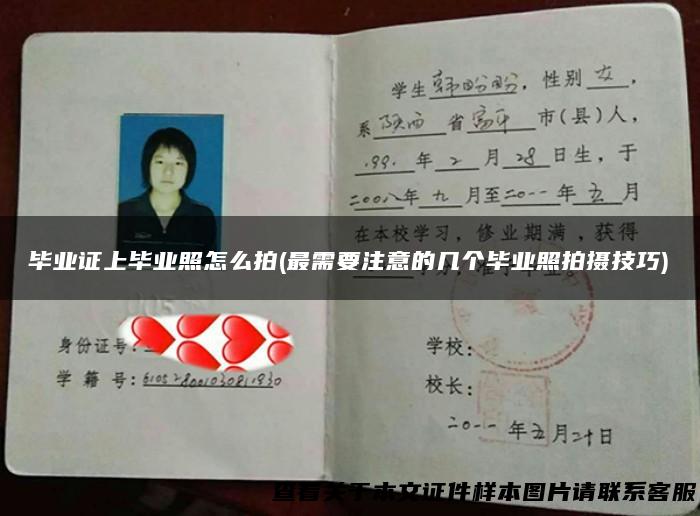 学生韩盼盼，性别女，
系陕西省富平市(县)人，
1991年2月28日生，于
二00八年九月至二0一一年五月
在本校学习，修业期满，获得
毕业证上毕业照怎么拍(最需要注意的几个毕业照拍摄技巧)
身份证号：
学籍号：610528001030811930
学校：
校长：
二0一一年五月二十日
查看关于本文证件样本图片请联系客服